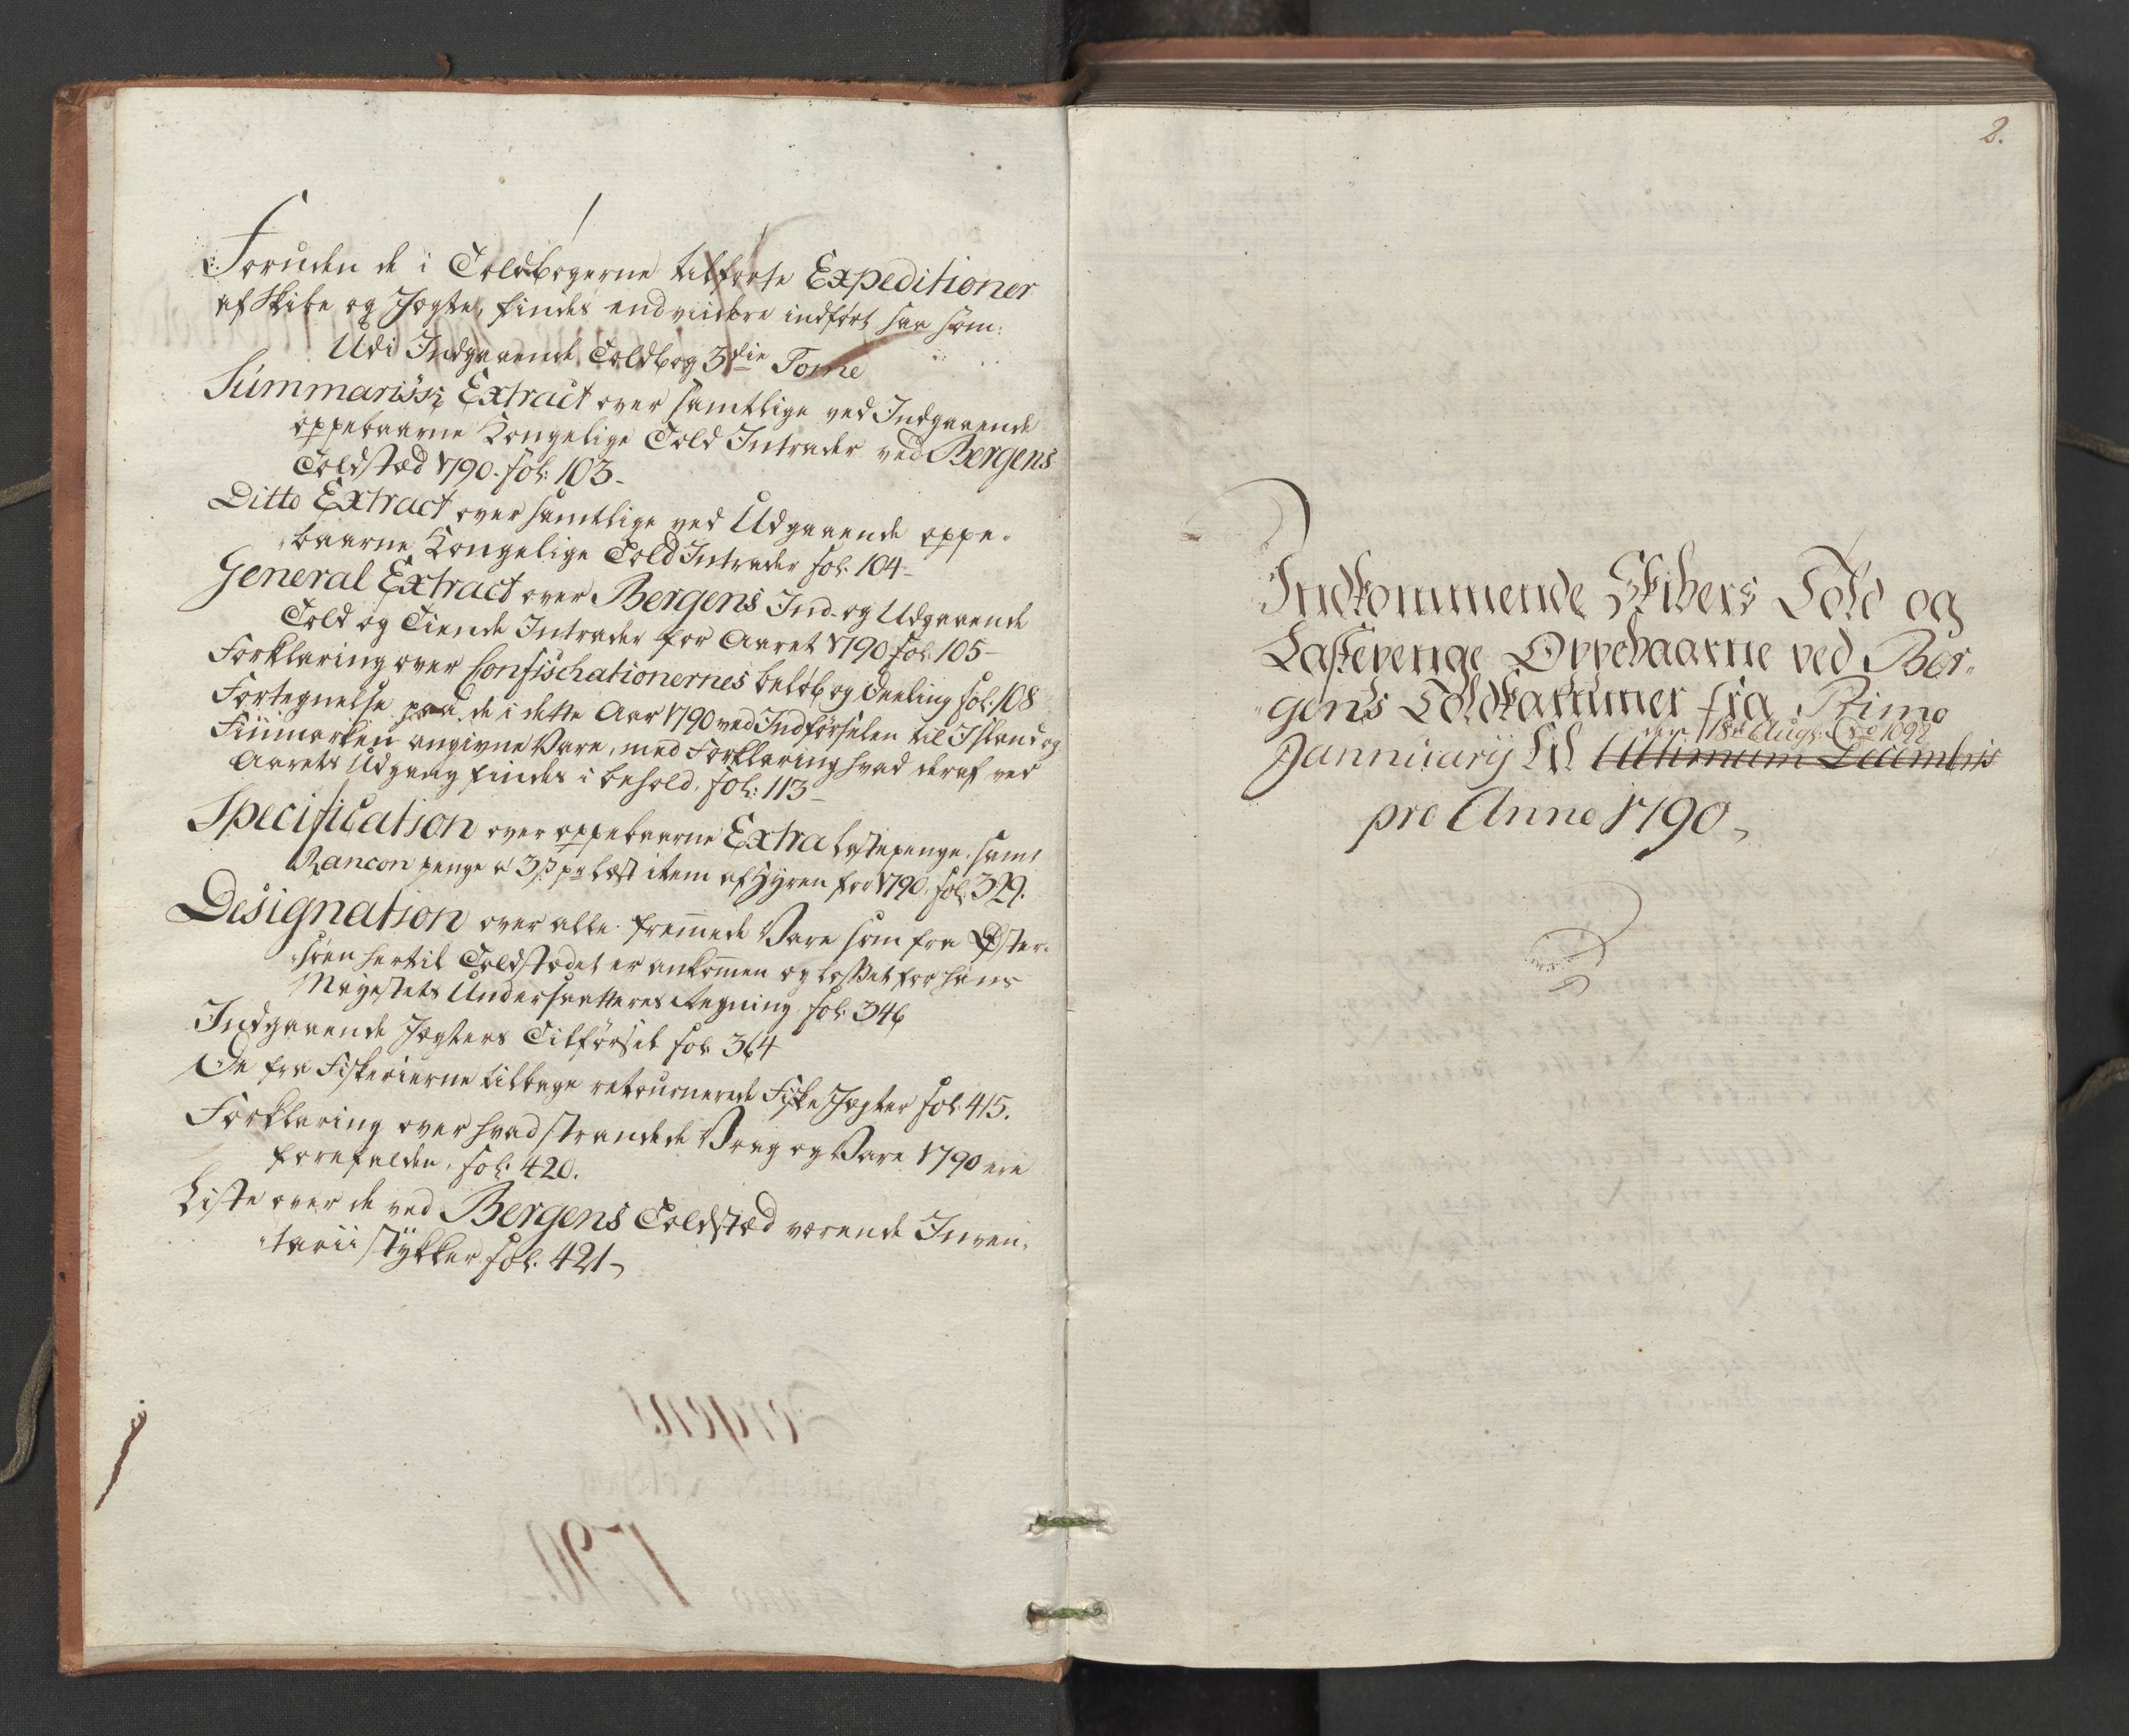 Foruden de i Toldbogerne tilførte Expeditioner
af Skibe og Jægter, findes end viidere indført saa som:
Udi Indgaaende Toldbog 3die Tome
Summarisk Extract over samtlige ved Indgaaende
oppebaarne Kongelige Told Intrader ved Bergens
Toldstæd 1790. fol: 103.
Ditto Extract over samtlige ved Udgaaende oppe-
baarne Kongelige Told Intrader fol. 104
General Extract over Bergens Ind- og Udgaaende
Told og Tiende Intrader for Aaret 1790 fol. 105
Forklaring over Confischationernes beløb og deeling fol. 108
Fortegnelse paa de i dette Aar 1790 ved Indførselen til Island og
Finmarken angivne Vare, med Forklaring hvad deraf ved
Aarets Udgang findes i behold. fol: 113
Specification over oppebaarne Extra Lastepenge, samt
Rancon penge a 3 s pr Læst item af Hyren for 1790. fol. 329.
Designation over alle fremmede Vare som fra Øster-
søen hertil Toldstædet er ankommen og losset for Hans
Mayestets Undersaatteres Regning fol. 346
Indgaaende Jægters Tilførsel fol. 364
De fra Fiskerierne tilbage retournerede Fiske Jægter fol. 415.
Forklaring over hvad strandede Vrag og Vare 1790 ere
forefalden, fol: 420.
Liste over de ved Bergens Toldstæd værende Inven-
tarii stykker fol. 421
2.
Indkommende Skibers Told og
Lastepenge Oppebaarne ved Ber-
gens Toldkammer fra Primo
den 18de Augs: No 1098
Jannuarij til Ultimum Decembris
pro Anno 1790